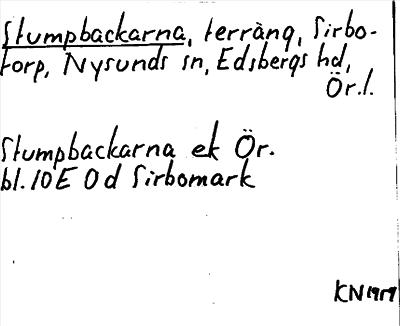 Stumpbackarna, terräng, Sirbo-
torp, Nysunds sn, Edsbergs hd,
Ör.l.
Stumpbackarna ek Ör.
bl. 10E 0d Sirbomark
KN